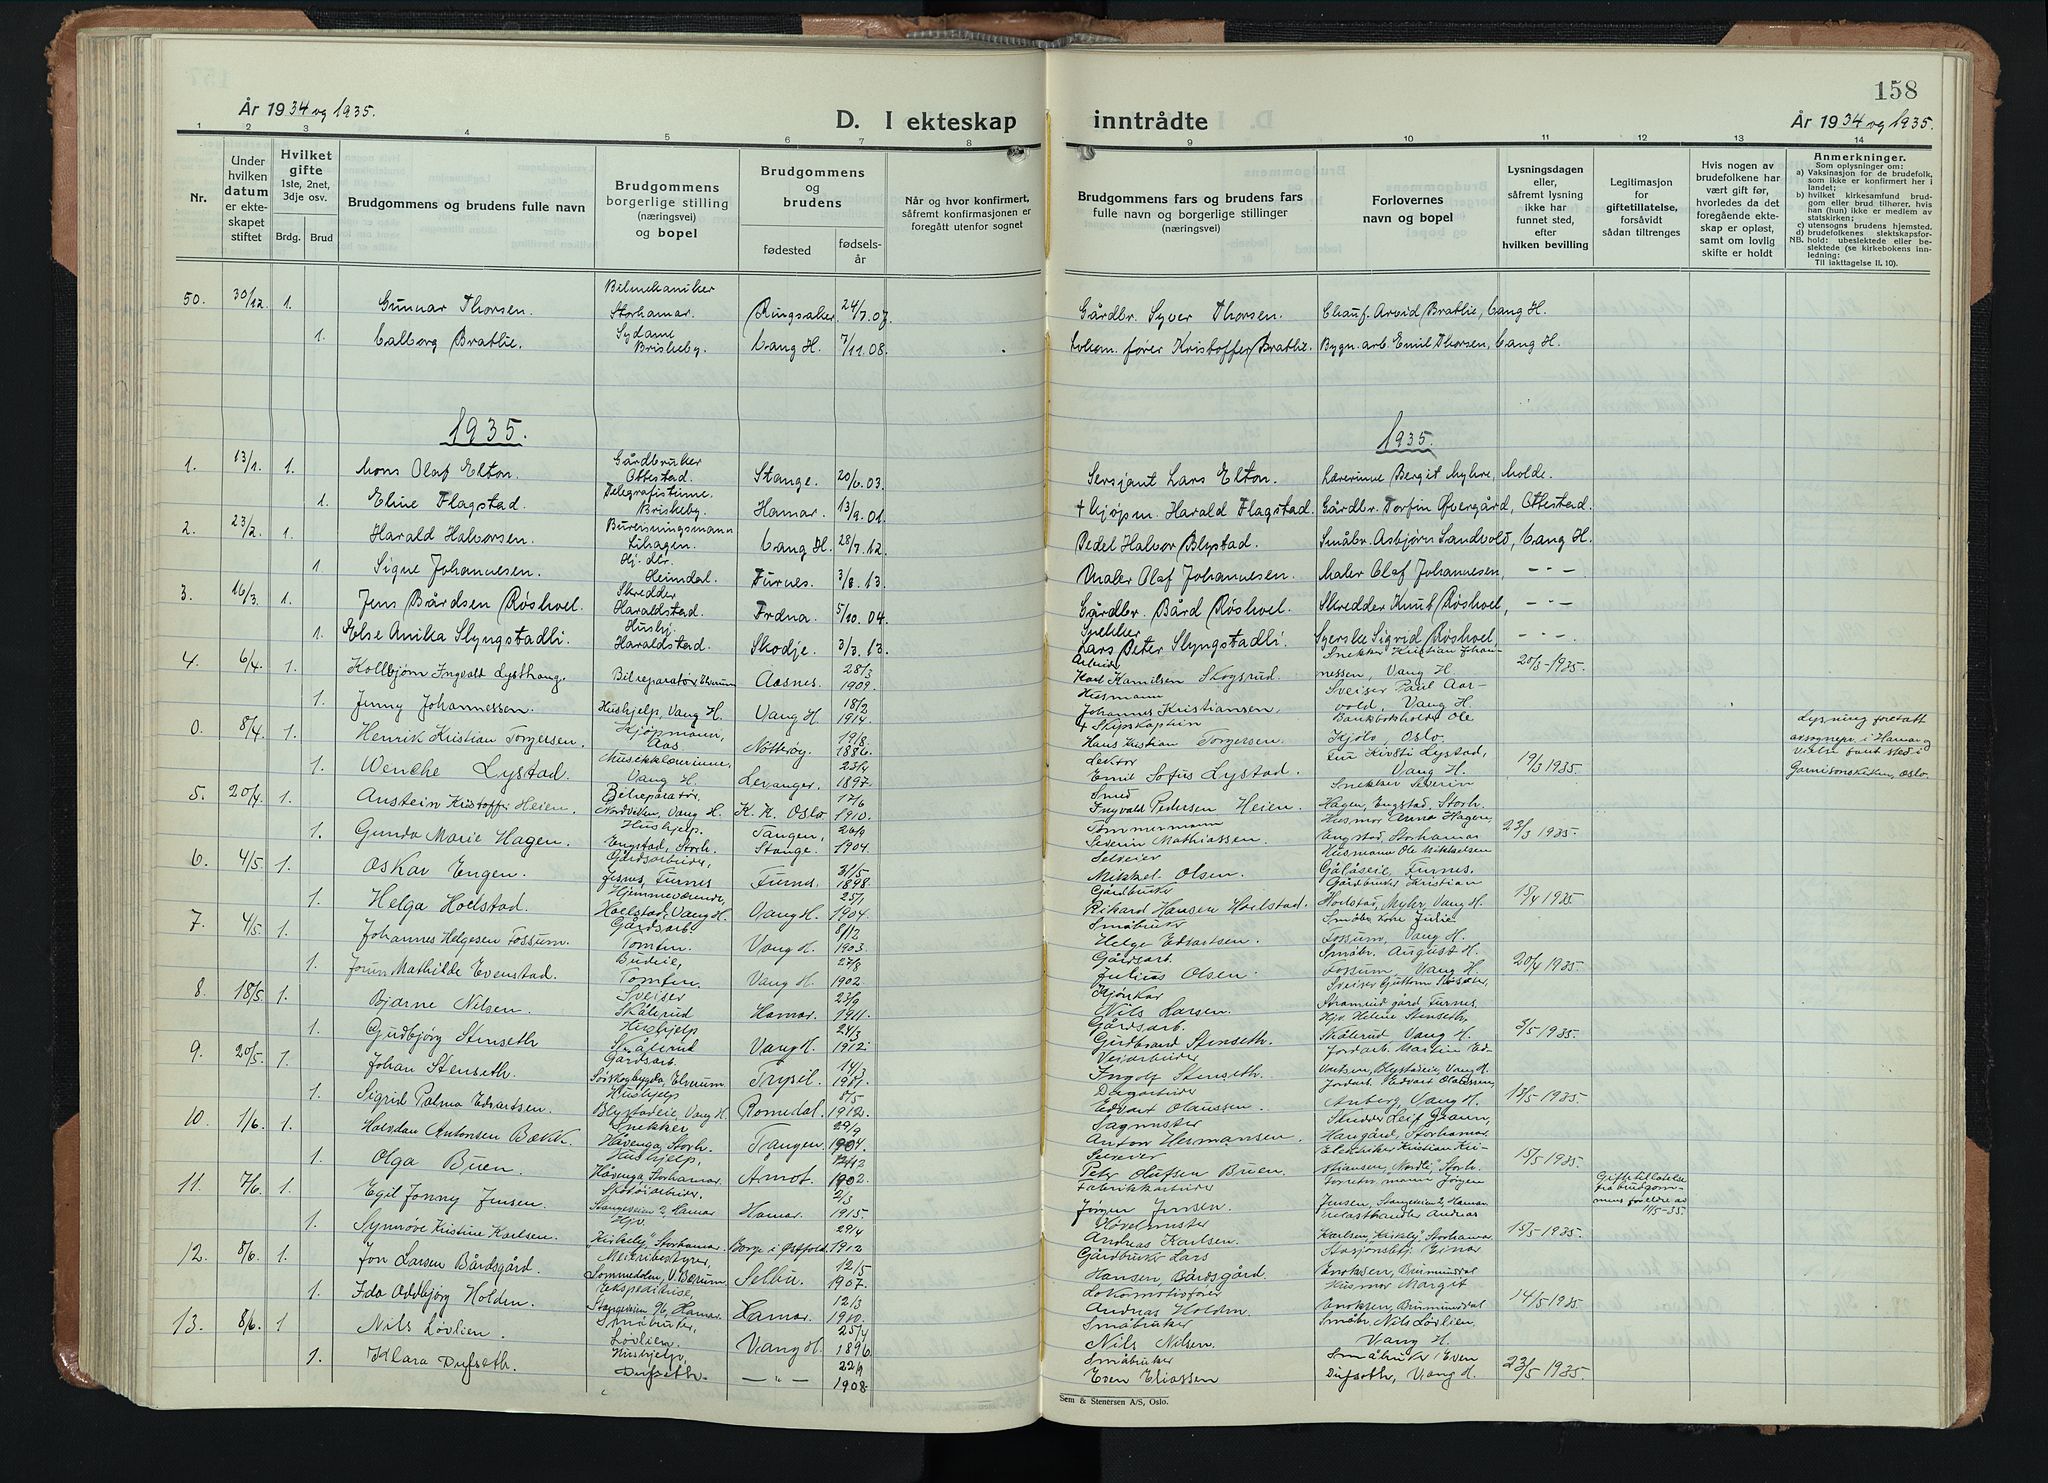 158
År 1934 og 1935.
D. I ekteskap inntrådte
År 1934 og 1935.
1 2 3 4 5 6 7 8 9 10 11 12 13 14
Nr.
Under hvilken datum er ekteskapet stiftet
Hvilket gifte 1ste, 2net, 3dje osv.
Brdg. Brud
Brudgommens og brudens fulle navn
Brudgommens borgerlige stilling (næringsvei) og bopel
Brudgommens og brudens
fødested
fødselsår
Når og hvor konfirmert, såfremt konfirmasjonen er foregått utenfor sognet
Brudgommens fars og brudens fars fulle navn og borgerlige stillinger (næringsvei)
Forlovernes navn og bopel
Lysningsdagen eller, såfremt lysning ikke har funnet sted, efter hvilken bevilling
Legitimasjon for giftetillatelse, forsåvidt sådan tiltrenges
Hvis nogen av brudefolkene har vært gift før, hvorledes da det foregående ekteskap er opløst, samt om lovlig skifte er holdt
Anmerkninger.
Som oplysninger om:
a) Vaksinasjon for de brudefolk, som ikke er konfirmert her i landet;
b) hvilket kirkesamfund brudgom eller brud tilhører, hvis han (hun) ikke er medlem av statskirken;
c) utensogns brudens hjemsted.
d) brudefolkenes slektskapsforhold: ubeslektede eller beslektede (se kirkebokens innledning:
NB.
Til iakttagelse II. 10).
50. 30/12. 1. Gunnar Thorsen. Bilmekaniker Storhamar. Ringsaker. 24/7.07. Gårdbr. Syver Thorsen. Chauf. Arvid Bratlie, Vang H.
1. Valborg Bratlie. Sydame Briskeby. Vang H. 7/11.08. Kristoffer Bratlie. Bygn. arb. Emil Thorsen, Vang H.
1935. 1935.
1. 13/1. 1. Mons Olaf Elton. Gårdbruker Ottestad. Stange. 20/6.03. Sersjant Lars Elton. Lærerinne Bergit Myhre, Molde.
1. Eline Flagstad. Telegrafistinne. Briskeby. Hamar. 13/9.01. + Kjøpm. Harald Flagstad. Gårdbr. Torfin Øvergård, Ottestad.
2. 23/2. 1. Harald Halvorsen. Bureisningsmann Lihagen. Vang H. 28/7.12. Pedel Halvor Blystad. Småbr. Asbjørn Sandvold, Vang H.
1. Signe Johannesen. Hj. dtr. Heimdal. Furnes. 3/8.13. Maler Olaf Johannesen. Maler Olaf Johannesen, -"-
3. 16/3. 1. Jens Bårdsen Røshoel. Skredder Haraldstad. Frdna. 5/10.04. Gårdbr. Bård Røshoel. Skredder Knut Røshoel, -"-
1. Else Anika Slyngstadli. Hushj. Haraldstad. Skodje. 3/3.13. Snekker Lars Peter Slyngstadli. Syerske Sigrid Røshoel -"-
4. 6/4. 1. Kolbjørn Ingvald Lysthaug. Bilreparatør Elverum Aasnes. 28/3 1909. Arbeid. Karl Kamilsen Skogsrud. Snekker Kristian Johannessen, Vang H. 20/3-1935.
1. Jenny Johannessen. Hushjelp, Vang H. Vang H. 18/2 1914. Husmann Johannes Kristiansen. Sveiser Paul Aarvold, Vang H.
0. 8/4. 1. Henrik Kristian Torgersen. Kjøpmann, Aas. Nøtterøy. 19/8 1886. + Skipskaptein Hans Kristian Torgersen. Bankbokholder Ole Kjolo, Oslo. Lysning foretatt av sognepr. i Hamar og vielse fant sted i Garnisonskirken, Oslo.
1. Wenche Lystad. Musikklærerinne, Vang H. Levanger. 23/4 1897. Lektor Emil Sofus Lystad. Fru Kirsti Lystad, Vang H. 19/3 1935.
5. 20/4. 1. Anstein Kristoffer Heien. Bilreparatør, Nordviken, Vang H. K. K. Oslo 17/6 1910. Smed Ingvald Pedersen Heien. Snekker Severin Hagen, Engstad, Storh.
1. Gunda Marie Hagen. Hushjelp. Engstad, Storh. Tangen, Stange. 26/9 1904. Tømmermann Severin Mathiassen. Husmor Anna Hagen, Engstad, Storhamar 23/3 1935.
6. 4/5. 1. Oskar Engen. Gårdsarbeider, Jesnes, Furnes Furnes. 31/5 1898. Selveier Mikkel Olsen. Husmann Ole Mikkelsen Gålåseie, Furnes.
1. Helga Hoelstad. Hjemmeværende, Hoelstad, Vang H. Vang H. 25/1 1904. Gårdbruker Rikard Hansen Hoelstad. Gårdbruker Kristian Hoelstad, Myhr, Vang H. 15/4 1935
7. 4/5. 1. Johannes Helgesen Fossum. Gårdsarb. Tomten. Vang H. 8/12 1903. Småbruker Helge Edvartsen. Småbr. kone Julie Fossum, Vang H.
1. Jorun Mathilde Evenstad. Budeie, Tomten. Vang H. 27/8 1902 Gårdsarb. Julius Olsen. Småbr. August H. Fossum, Vang H. 20/4 1935.
8. 18/5. 1. Bjarne Nilsen. Sveiser Skålerud Hamar. 23/9 1911. Kjørekar Nils Larsen. Sveiser Guttorm Furnes.
1. Gudbjørg Stenseth. Hushjelp Skålerud Vang H. 24/3 1912. Gårdsarb. Gudbrand Stenseth. Hjv. Helene Stenseth. Skålerud Vang H. 3/5 1935.
9. 20/5. 1. Johan Stenseth. Gårdsarb. Sørskogbygda, Elverum Trysil. 14/3 1901. Veiarbeider Ingolf Stenseth. Jordarb. Martin Edvartsen, Blystadeie, Vang H.
1. Sigrid Palma Edvartsen. Hushjelp Blystadeie, Vang H. Romedal. 8/5 1912. Dagarbeider Edvart Olaussen. Jordarb. Edvart Olaussen, Vang H. 18/5 1935.
10. 1/6. 1. Halvdan Antonsen Bækk. Snekker Håvenga, Storh. Tangen. 29/9 1904. Sagmester Anton Hermansen. Leif Haugård, Storhamar.
1. Olga Buen. Hushjelp, Håvenga, Storhamar. Åmot. 12/12 1902. Selveier Peter Olufsen Buen. Elektriker Kristian Kristiansen, "Nordli", Storh. 15/5 1935.
11. 7/6. 1. Egil Jonny Jensen. Skotøiarbeider, Stangeveien 2, Hamar Hamar. 2/3 1915. Fabrikkarbeider Jørgen Jensen. Jørgen Jensen, Stangeveien 2, Hamar. Giftetillatelse fra brudgommens foreldre av 14/5-35.
1. Synnøve Kristine Karlsen. Hjv. "Kirkeby", Storhamar. Borge i Østfold. 29/4 1912 Høvelmester Andreas Karlsen. Trelasthandler Andreas Karlsen, "Kirkeby", Storhamar 15/5-1935.
12. 8/6. 1. Jon Larsen Bårdsgård. Meieribestyrer, Sommedden, V. Bærum Selbu. 12/5 1907. Gårdbruker Lars Hansen Bårdsgård. Stasjonsbtj. Einar Enoksen, Brumunddal
1. Ida Oddbjørg Holden. Ekspeditrise, Stangeveien 96, Hamar. Hamar. 12/3 1910. Lokomotivfører Andreas Holden. Husmor Margit Enoksen, Brumunddal 14/5 1935.
13. 8/6. 1 Nils Løvlien. Småbruker, Løvlien. Vang H. 25/4 1896 Småbruker Nils Nilsen. Småbr. Nils Løvlien, Vang H.
1. Klara Dufseth. Hushjelp, Dufseth. -"- 22/9 1908. Småbruker Even Eliassen Småbruker Even Dufseth, Vang H. 23/5-1935.
Sem & Stenersen A/S, Oslo.